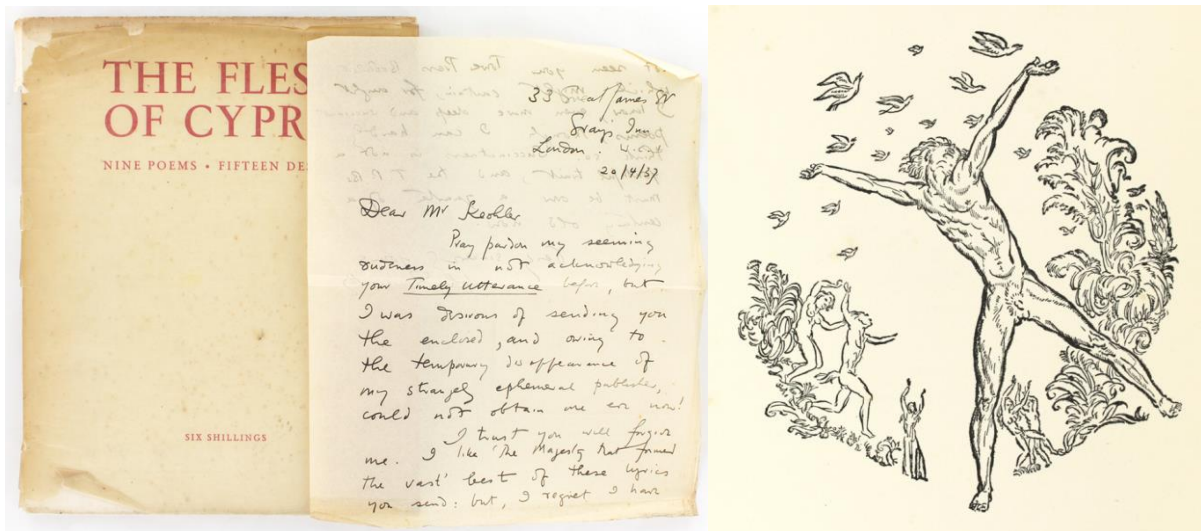 THE FLES
OF CYPR
NINE POEMS • FIFTEEN DE
SIX SHILLINGS
33 Great James St
Grays Inn
London W.C.1
20/4/37
Dear Mr Keohler
Pray pardon my seeming
rudeness in not acknowledging
your Timely Utterance before, but
I was desirous of sending you
the enclosed, and owing to
the temporary disappearance of
my strangely ephemeral publisher,
could not obtain one ere now!
I trust you will forgive
me. I like 'The Majesty that formed
the vast' best of these lyrics
you send: but, I regret I have